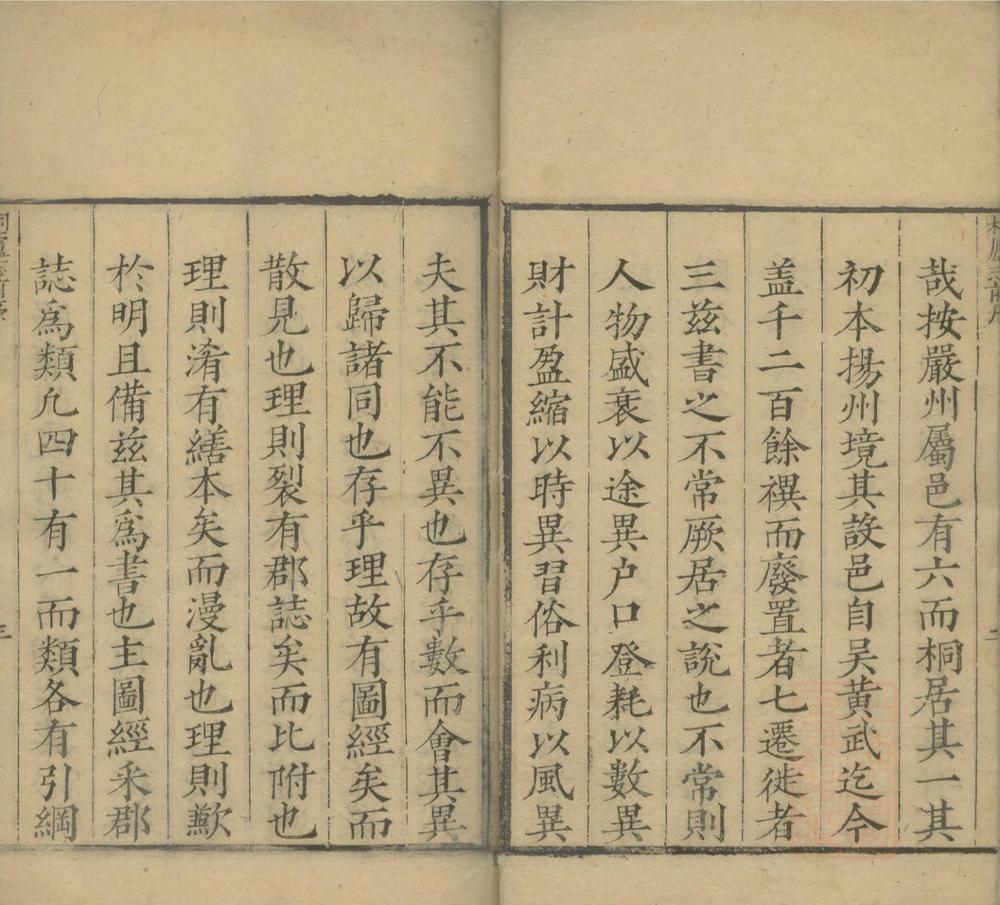 哉按嚴州屬邑有六而桐居其一其
初本揚州境其設邑自吴黄武迄今
盖千二百餘禩而廢置者七遷徙者
三兹書之不常厥居之說也不常則
人物盛衰以途異户口登耗以數異
財計盈縮以時異習俗利病以風異
夫其不能不異也存乎數而會其異
以歸諸同也存乎理故有圖經矣而
散見也理則裂有郡誌矣而比附也
理則淆有繕本矣而漫亂也理則歉
於明且備兹其爲書也主圖經采郡
誌爲類凢四十有一而類各有引綱